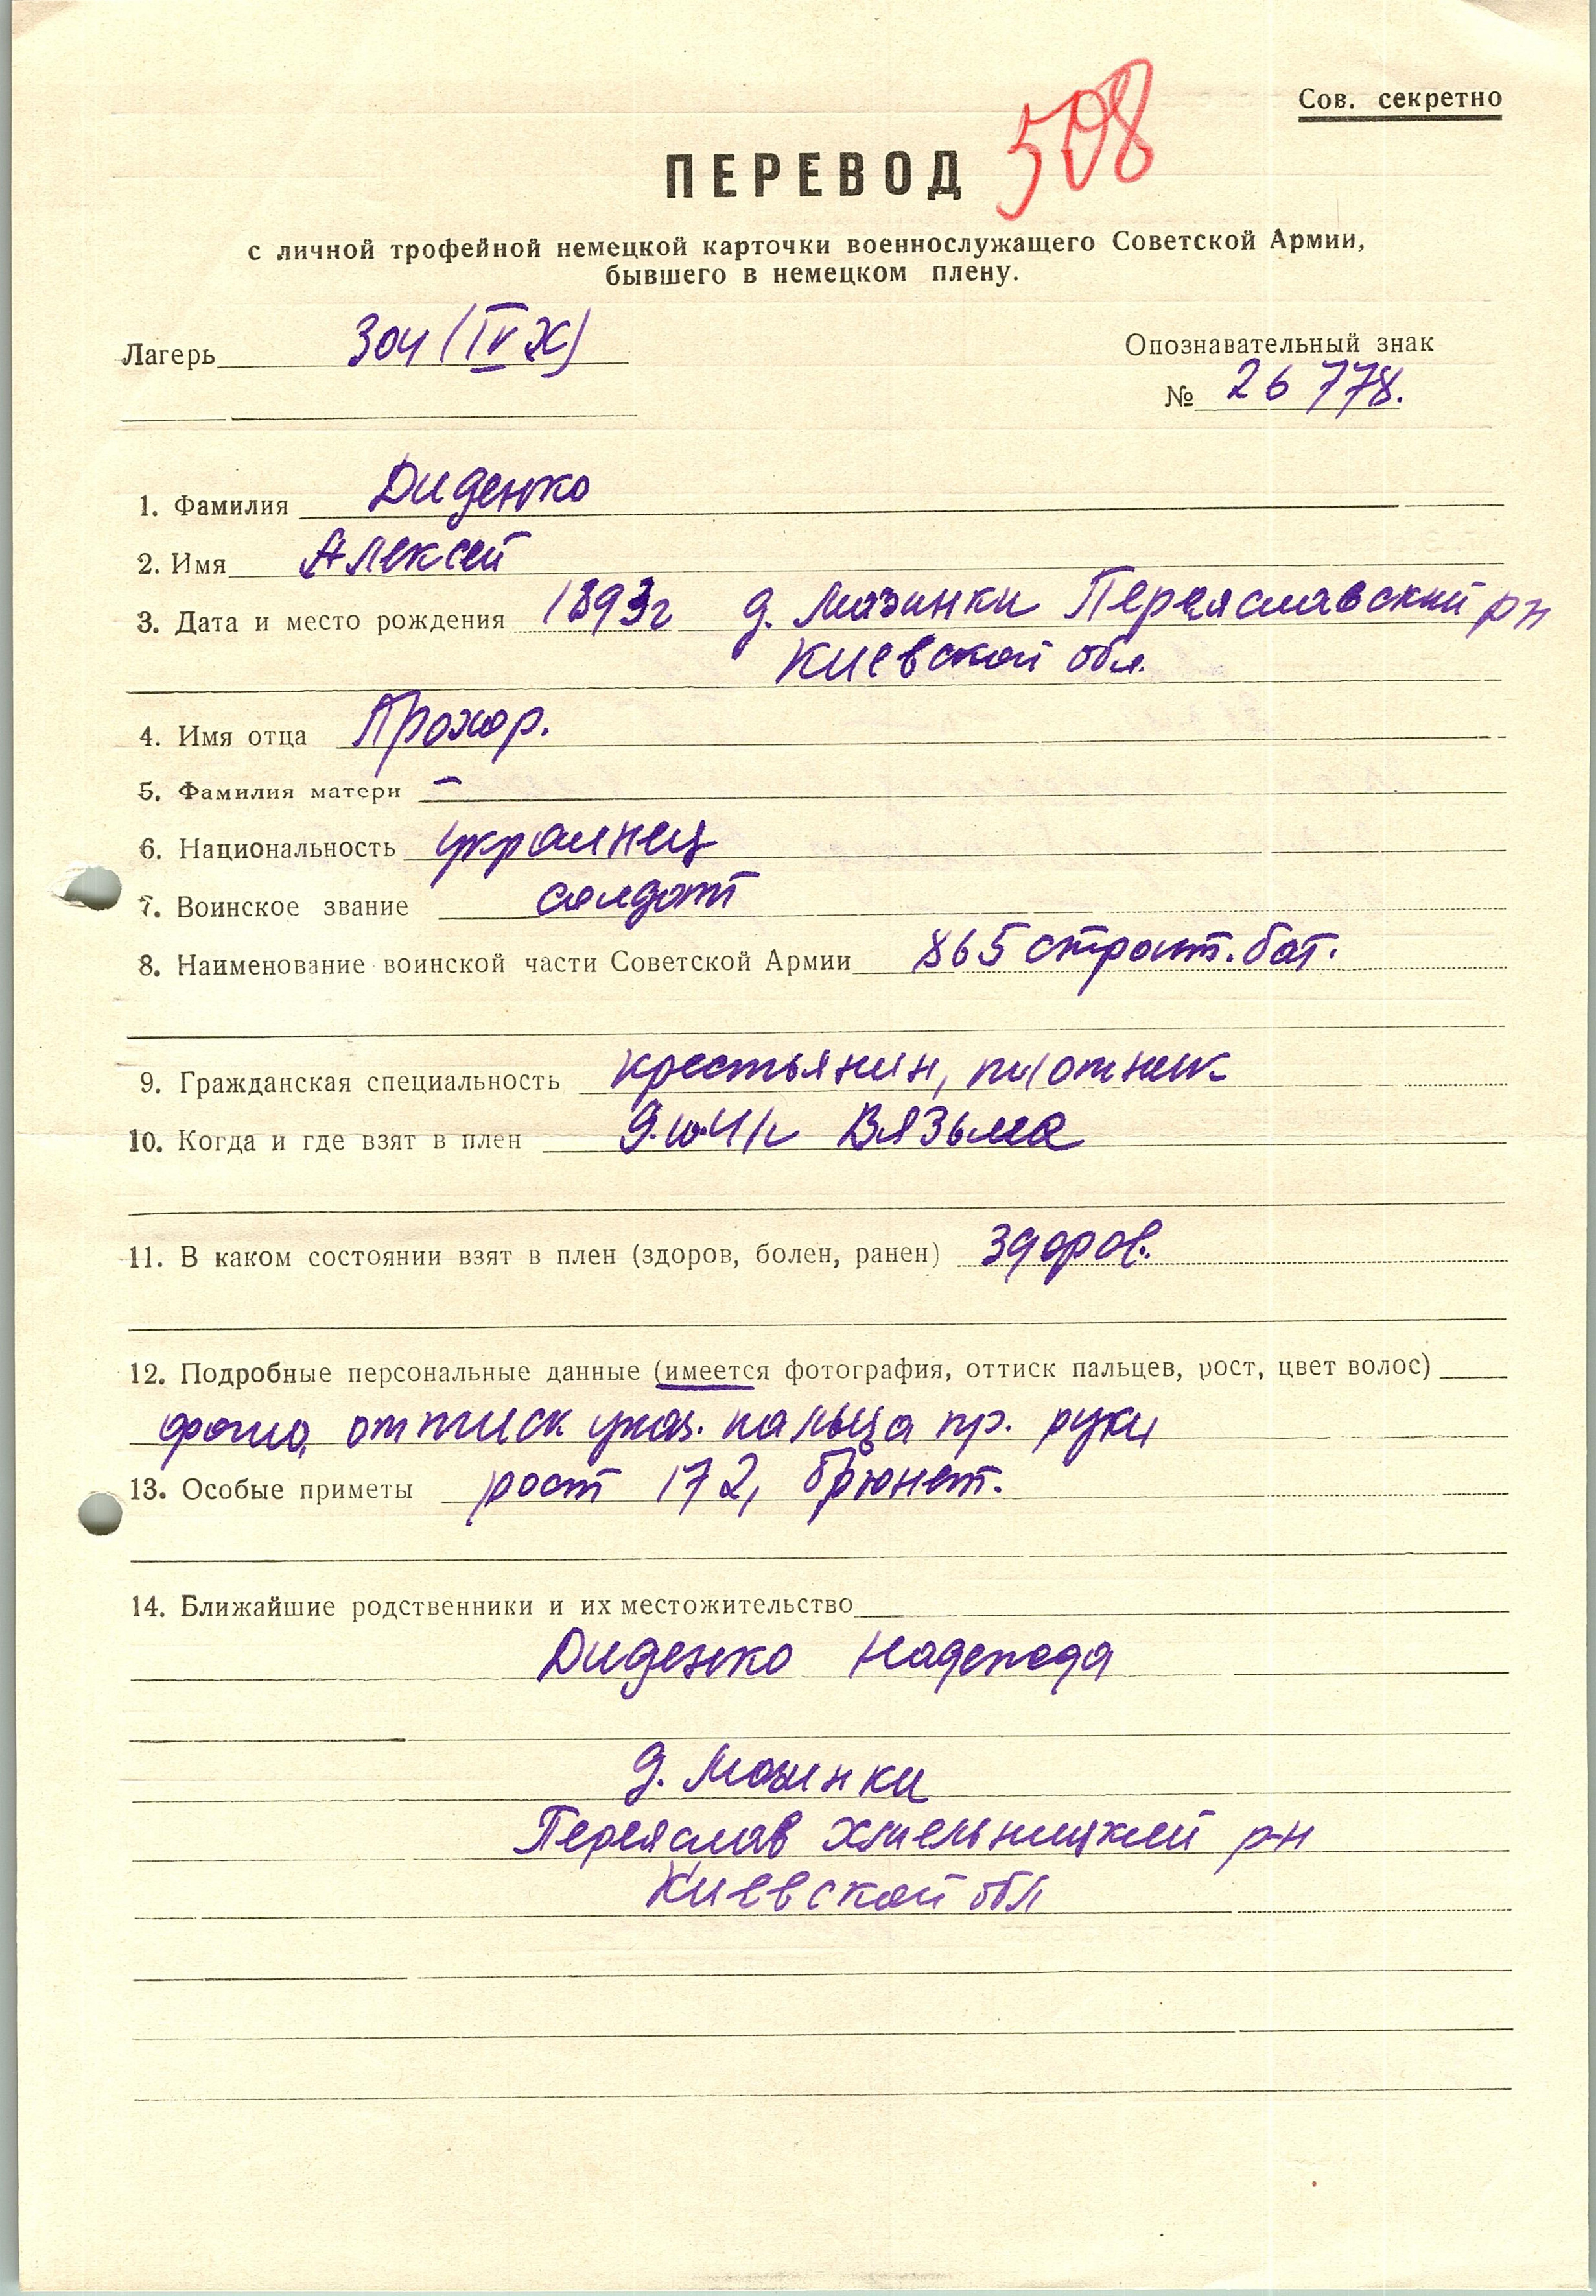 Сов. секретно
508
ПЕРЕВОД
с личной трофейной немецкой карточки военнослужащего Советской Армии,
бывшего в немецком плену.
Лагерь 304 (IV Х)
Опознавательный знак
№ 26778.
1. Фамилия Диденко
2. Имя Алексей
3. Дата и место рождения 1893г д. Мазинки Переяславский р-н
Киевской обл.
4. Имя отца Прохор.
5. Фамилия матери —
6. Национальность украинец
7. Воинское звание солдат
8. Наименование воинской части Советской Армии 865 строит. бат.
9. Гражданская специальность крестьянин, плотник
10. Когда и где взят в плен 9.10.41г Вязьма
11. В каком состоянии взят в плен (здоров, болен, ранен) здоров.
12. Подробные персональные данные (имеется фотография, оттиск пальцев, рост, цвет волос)
фото, оттиск указ. пальца пр. руки
13. Особые приметы рост 172, брюнет.
14. Ближайшие родственники и их местожительство
Диденко Надежда
д. Мазинки
Переяслав Хмельницкий р-н
Киевской обл